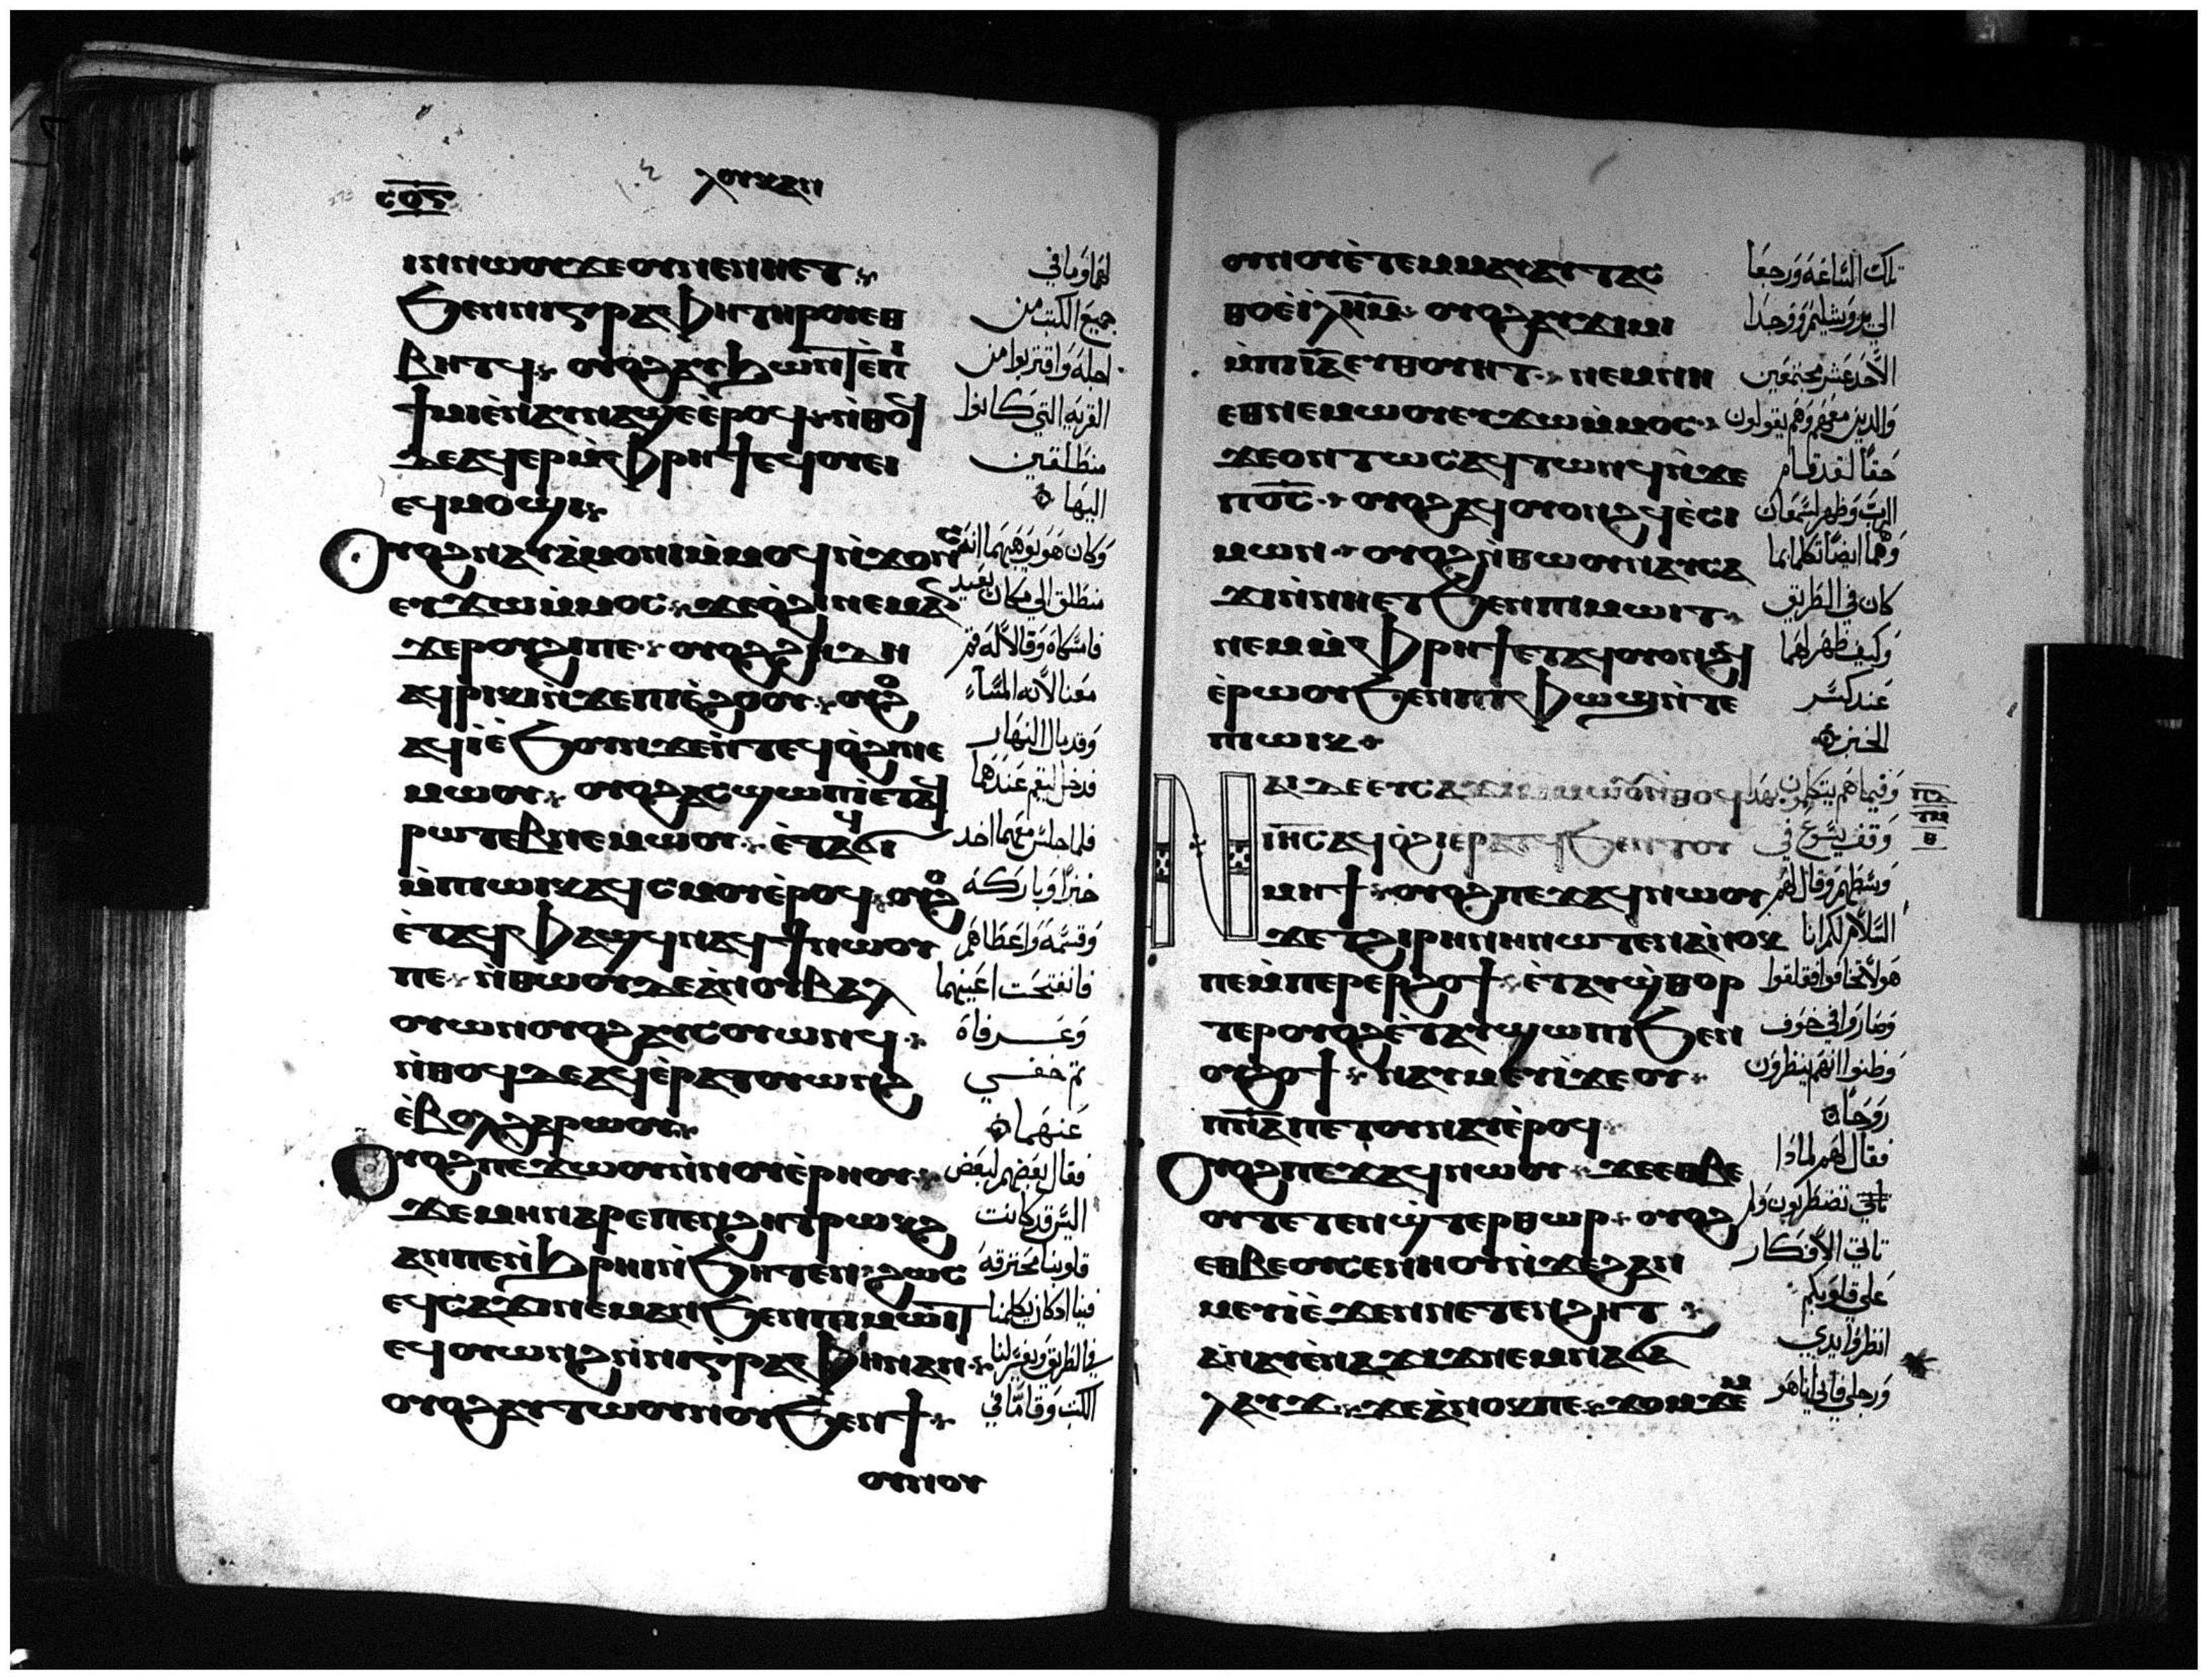 ⲥⲟⲋ
ⲗⲟⲩⲕⲁⲛ
ⲓⲛⲛⲱⲟⲩϫⲉⲟⲩⲛⲉⲛⲏⲉⲧ
ϧⲉⲛⲛⲓⲅⲣⲁⲫⲏⲧⲏⲣⲟⲩⲉⲑ
ⲃⲏⲧϥ ⲟⲩⲟϩⲁⲩϧⲱⲛⲧ
ϯⲙⲓⲉⲛⲁⲩⲛⲁϣⲉⲉⲣⲟϥ ⲛⲑⲟϥ
ⲇⲉⲁϥⲉⲣⲙⲫⲣⲏϯⲉϥⲟⲩⲉⲓ
ⲉϥⲙⲟϣⲓ
ⲟⲩⲟϩⲛⲁⲩⲁⲙⲟⲛⲓⲙⲙⲟϥⲛϫⲟⲛⲥ
ⲉⲩϫⲱⲙⲙⲟⲥ ϫⲉⲟϩⲓⲛⲉⲙⲁⲛ
ϫⲉⲣⲟⲩϩⲓⲡⲉ ⲟⲩⲟϩϩⲏⲇⲏ
ⲁϥⲣⲓⲕⲓⲛϫⲉⲡⲓⲉϩⲟⲟⲩ ⲟⲩⲟϩ
ⲁϥⲓⲉϧⲟⲩⲛϫⲉⲛⲧⲉϥⲟϩⲓⲛⲉ
ⲙⲱⲟⲩ ⲟⲩⲟϩⲁⲥϣⲱⲡⲓⲉⲧⲁϥ
ⲣⲱⲧⲉⲃⲛⲉⲙⲱⲟⲩ ⲉⲧⲁϥϭⲓ
ⲙⲡⲓⲱⲓⲕⲁϥⲥⲙⲟⲩⲉⲣⲟϥ ⲟⲩⲟϩ
ⲉⲧⲁϥⲫⲁϣϥⲛⲁϥϯⲛⲱⲟⲩ
ⲡⲉ ⲛⲑⲱⲟⲩⲇⲉⲁⲛⲟⲩⲃⲁⲗ
ⲟⲩⲱⲛⲟⲩⲟϩⲁⲩⲥⲟⲩⲱⲛϥ
ⲛⲑⲟϥⲇⲉⲁϥⲉⲣⲁⲧⲟⲩⲱⲛϩ
ⲉⲃⲟⲗϩⲁⲣⲱⲟⲩ
ⲟⲩⲟϩⲡⲉϫⲱⲟⲩⲛⲛⲟⲩⲉⲣⲏⲟⲩ
ϫⲉⲙⲏⲛⲁⲣⲉⲡⲉⲛϩⲏⲧⲣⲱⲕϩ
ⲁⲛⲡⲉⲛϩⲣⲏⲓⲛϧⲏⲧⲉⲛ ϩⲱⲥ
ⲉϥⲥⲁϫⲓⲛⲉⲙⲁⲛϧⲉⲛⲡⲓⲙⲱⲓⲧ
ⲉϥⲟⲩⲱⲛϩⲛⲛⲓⲅⲣⲁⲫⲏⲛⲁⲛ
ⲟⲩⲟϩⲁⲩⲧⲱⲟⲩⲛⲟⲩϧⲉⲛϯ
ⲟⲩⲛⲟⲩ
لهما وما في
جميع الكتب من
اجله واقتربوا من
القريه التي كانوا
منطلقين
اليها
وكان هو يوهيهما انه
منطلق الي مكان بعيد
فامسكاه وقالا له قم
معنا لانه المساء
وقد مال النهار
فدخل ليقم عندهما
فلما جلس معهما اخد
خبزا وباركه
وقسمه واعطاهم
فانفتحت اعينهما
وعرفاه
ثم خفي
عنهما
فقال بعضهم لبعض
اليس قد كانت
قلوبنا محترقه
فينا ادكان يكلمنا
في الطريق ويفسر لنا
الكتب وقاما في
ⲟⲩⲛⲟⲩⲉⲧⲉⲙⲙⲁⲩⲁⲩⲧⲁⲥ
ⲑⲟⲉⲓⲗⲏⲙ ⲟⲩⲟϩⲁⲩϫⲓⲙⲓ
ⲙⲡⲓⲓⲁⲉⲩⲑⲟⲩⲏⲧ ⲛⲉⲙⲛⲏ
ⲉⲑⲛⲉⲙⲱⲟⲩⲉⲩϫⲱⲙⲙⲟⲥ
ϫⲉⲟⲛⲧⲱⲥⲁϥⲧⲱⲛϥⲛϫⲉ
ⲡⲟⲥ ⲟⲩⲟϩⲁϥⲟⲩⲟⲛϩϥⲉⲥⲓ
ⲙⲱⲛ ⲟⲩⲟϩⲛⲑⲱⲟⲩⲛⲁⲩⲥⲁ
ϫⲓⲛⲛⲏⲉⲧϧⲉⲛⲡⲓⲙⲱⲓⲧ
ⲛⲉⲙⲙⲫⲣⲏϯⲉⲧⲁϥⲟⲩⲟⲛϩϥ
ⲉⲣⲱⲟⲩϧⲉⲛⲡⲓⲫⲱϣⲛⲧⲉ
ⲡⲓⲱⲓⲕ
ⲛⲁⲓⲇⲉⲉⲩⲥⲁϫⲓⲙⲙⲱⲟⲩⲛⲑⲟϥ
ⲓⲏⲥⲁϥⲟϩⲓⲉⲣⲁⲧϥϧⲉⲛⲧⲟⲩ
ⲙⲏϯ ⲟⲩⲟϩⲡⲉϫⲁϥⲛⲱⲟⲩ
ϫⲉⲧϩⲓⲣⲏⲛⲏⲛⲱⲧⲉⲛⲁⲛⲟⲕ
ⲡⲉⲙⲡⲉⲣⲉⲣϩⲟϯ ⲉⲧⲁⲩϣⲑⲟⲣ
ⲧⲉⲣⲟⲩⲟϩⲉⲧⲁⲩϣⲱⲡⲓϧⲉⲛ
ⲟⲩϩⲟϯ ⲛⲁⲩⲙⲉⲩⲓϫⲉⲟⲩ
ⲡⲛⲁⲡⲉⲧⲟⲩⲛⲁⲩⲉⲣⲟϥ
ⲟⲩⲟϩⲡⲉϫⲁϥⲛⲱⲟⲩ ϫⲉⲉⲑⲃⲉ
ⲟⲩⲧⲉⲧⲉⲛϣⲧⲉⲣⲑⲱⲣ ⲟⲩⲟϩ
ⲉⲑⲃⲉⲟⲩⲥⲉⲛⲏⲟⲩⲛϫⲉϩⲁⲛ
ⲙⲉⲩⲓⲉϫⲉⲛⲡⲉⲧⲉⲛϩⲏⲧ
ⲁⲛⲁⲩⲉⲛⲁϫⲓϫⲛⲉⲙⲛⲁϭⲁ
ⲗⲁⲩϫ ϫⲉⲁⲛⲟⲕⲡⲉ ϫⲟⲙϫⲉⲙ
تلك الساعه ورجعا
الي يروشليم ووجدا
الاحد عشر مجتمعين
والدين معهم وهم يقولون
حقا لقد قام
الرب وظهر لسمعان
وهما ايضا تكلما بما
كان في الطريق
وكيف ظهر لهما
عند كسر
الخبز
وفيما هم يتكلمون بهدا
وقف يسوع في
وسطهم وقال لهم
السلام لكم انا
هو لا تخافوا فقلقوا
وصاروا في خوف
وظنوا انهم ينظرون
روحا
فقال لهم لمادا
تضطربون ولم
تاتي الافكار
علي قلوبكم
انظروا يدي
ورجلي فاني انا هو